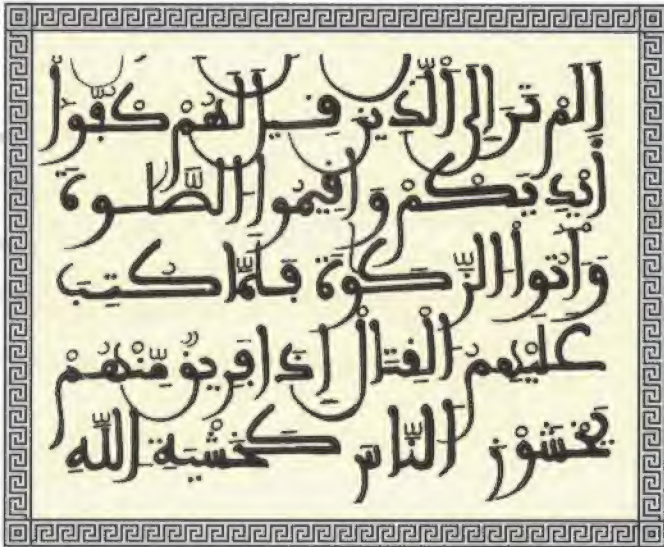 أَلَمْ تَرَ إِلَى الَّذِينَ قِيلَ لَهُمْ كُفُّوا
أَيْدِيَكُمْ وَأَقِيمُوا الصَّلَوةَ
وَآتُوا الزَّكَوةَ فَلَمَّا كُتِبَ
عَلَيْهِمُ الْقِتَالُ إِذَا فَرِيقٌ مِّنْهُمْ
يَخْشَوْنَ النَّاسَ كَخَشْيَةِ اللَّهِ